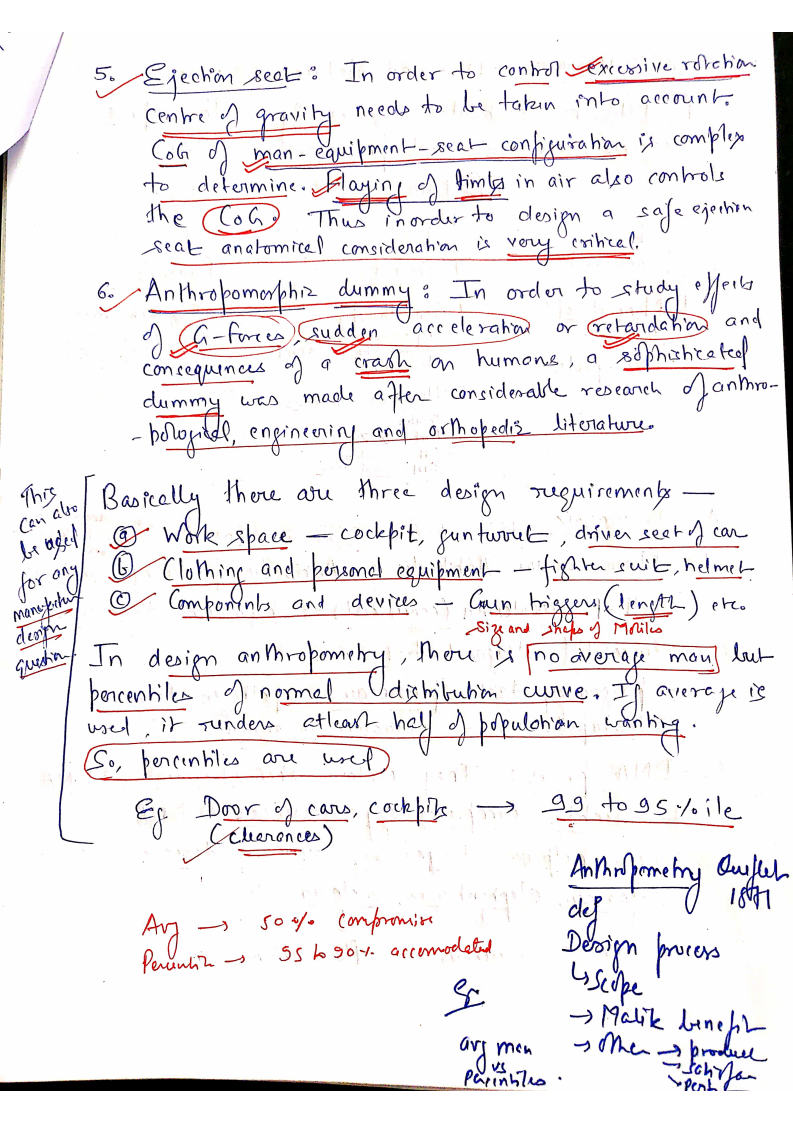 5. Ejection seat: In order to control excessive rotation
Centre of gravity needs to be taken into account.
CoG of man-equipment-seat configuration is complex
to determine. Flaying of limbs in air also controls
the CoG. Thus inorder to design a safe ejection
seat anatomical consideration is very critical.
6. Anthropomorphic dummy: In order to study effects
of G-forces, sudden acceleration or retardation and
consequences of a crash on humans, a sophisticated
dummy was made after considerable research of anthro-
-pological, engineering and orthopedic literature.
This
can also
be used
for any
design
question
Basically there are three design requirements —
(a) Work space – cockpit, gun turret, driver seat of car
(b) Clothing and personal equipment – fighter suit, helmet
(c) Components and devices – Gun triggers (length) etc.
Size and shape of Mobiles
In design anthropometry, there is no average man but
percentiles of normal distribution curve. If average is
used, it renders atleast half of population wanting.
So, percentiles are used
Eg Door of cars, cockpits → 99 to 95 %ile
(Clearences)
Avg → 50% compromise
Percentile → 95 to 90% accomodated
Anthropometry
def
Design process
↳ Scope
→ Malik benefit
→ other → produce
Eg
avg man
vs
Percentiles.